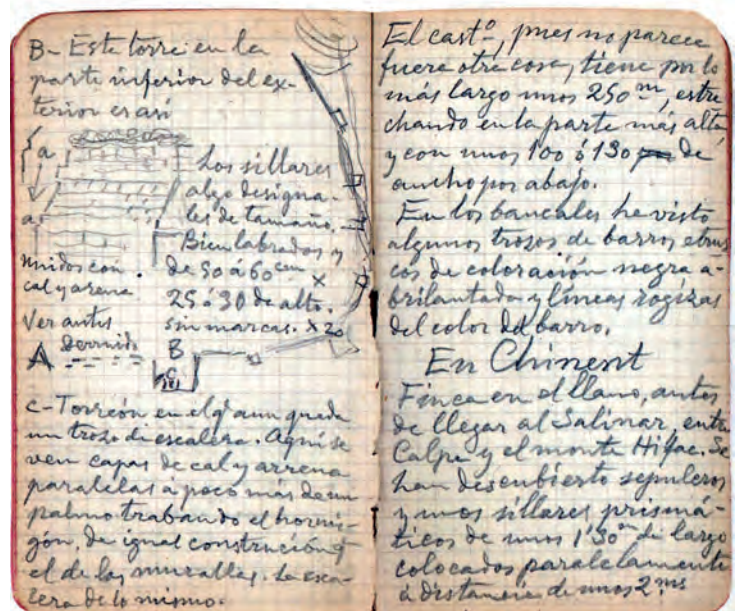 B- Este torre en la
parte inferior del ex-
terior es así
a
a
Los sillares
algo desigua-
les de tamaño.
Bien labrados y
de 50 á 60 cm x
25 á 30 de alto.
sin marcas. x 20
Unidos con
cal y arena
Ver antes
A
B
C
C- Torreón en el q. aun queda
un trozo de escalera. Aquí se
ven capas de cal y arrena
paralelas á poco más de un
palmo trabando el hormi-
gón, de igual construcción q
el de las murallas. La esca-
lera de lo mismo.
El castº, pues no parece
fuera otra cosa, tiene por lo
más largo unos 250 m, estre
chando en la parte más alta
y con unos 100 ó 130 de
ancho por abajo.
En los bancales he visto
algunos trozos de barros etrus
cos de coloración negra a-
brilantada y líneas rogizas
del color del barro.
En Chinent
Finca en el llano, antes
de llegar al Salinar, entre
Calpe y el monte Hifac. Se
han descubierto sepulcros
y unos sillares prismá-
ticos de unos 1'50 m de largo
colocados paralelamente
á distancia de unos 2 ms